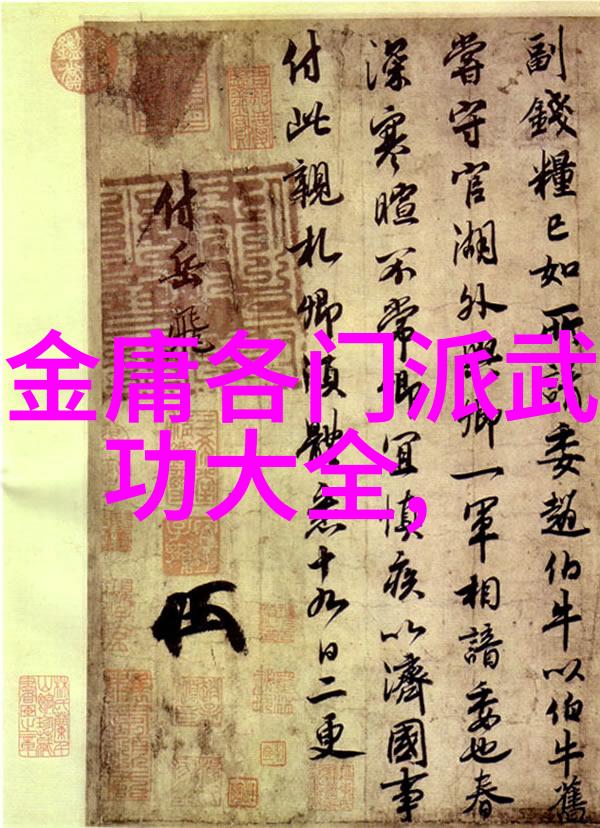 金庸各门派武
功大全,
副錢糧已如所請委趙伯牛以伯牛舊
嘗守官湖外與卿一軍相諳委也春
深寒暄不常卿宜慎疾以濟國事
付此親札卿須體悉十九日二更
付岳飛